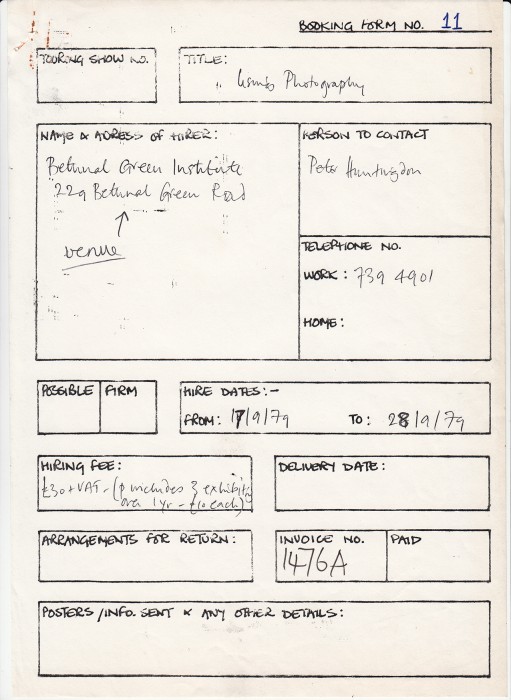 BOOKING FORM NO. 11
TOURING SHOW NO.
TITLE:
Using Photography
NAME & ADRESS OF HIRER:
Bethnal Green Institute
229 Bethnal Green Road
venue
PERSON TO CONTACT
Peter Huntingdon
TELEPHONE NO.
WORK: 739 4901
HOME:
POSSIBLE
FIRM
HIRE DATES:-
FROM: 17/9/79 TO: 28/9/79
HIRING FEE:
£30+VAT - (includes 3 exhibit
over 1yr - £10 each)
DELIVERY DATE:
ARRANGEMENTS FOR RETURN:
INVOICE NO.
1476A
PAID
POSTERS/INFO. SENT & ANY OTHER DETAILS: